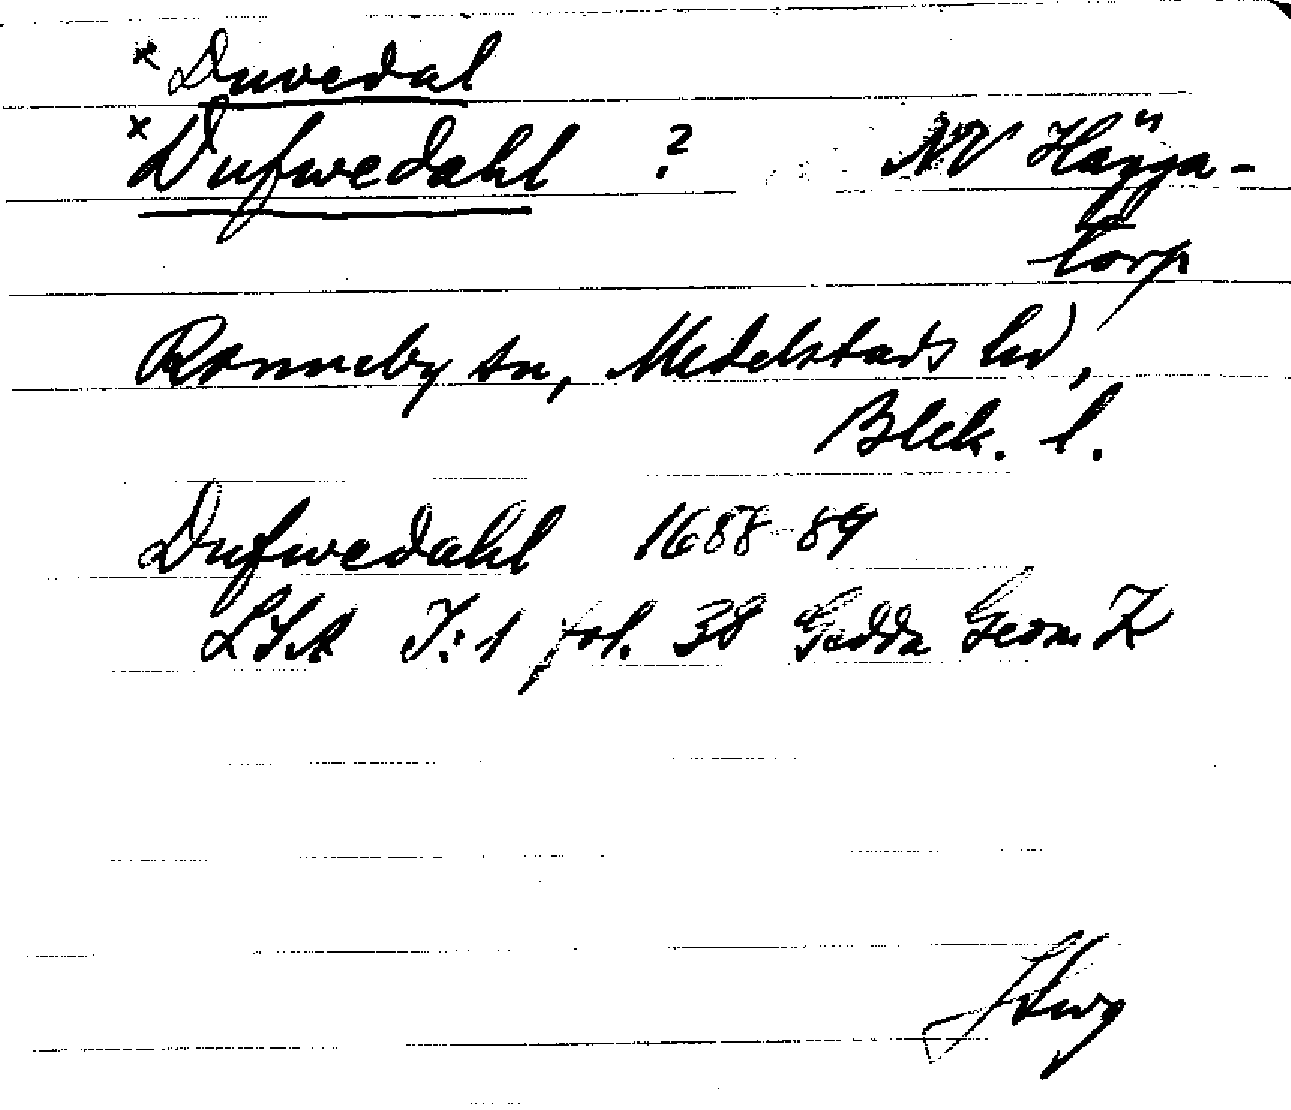 * Duvedal
* Dufwedahl ? NV Häggatorp
Ronneby sn, Medelstads hd,
Blek. l.
Dufwedahl 1688-89
LSA I:1 fol. 38 Gedda Geom K